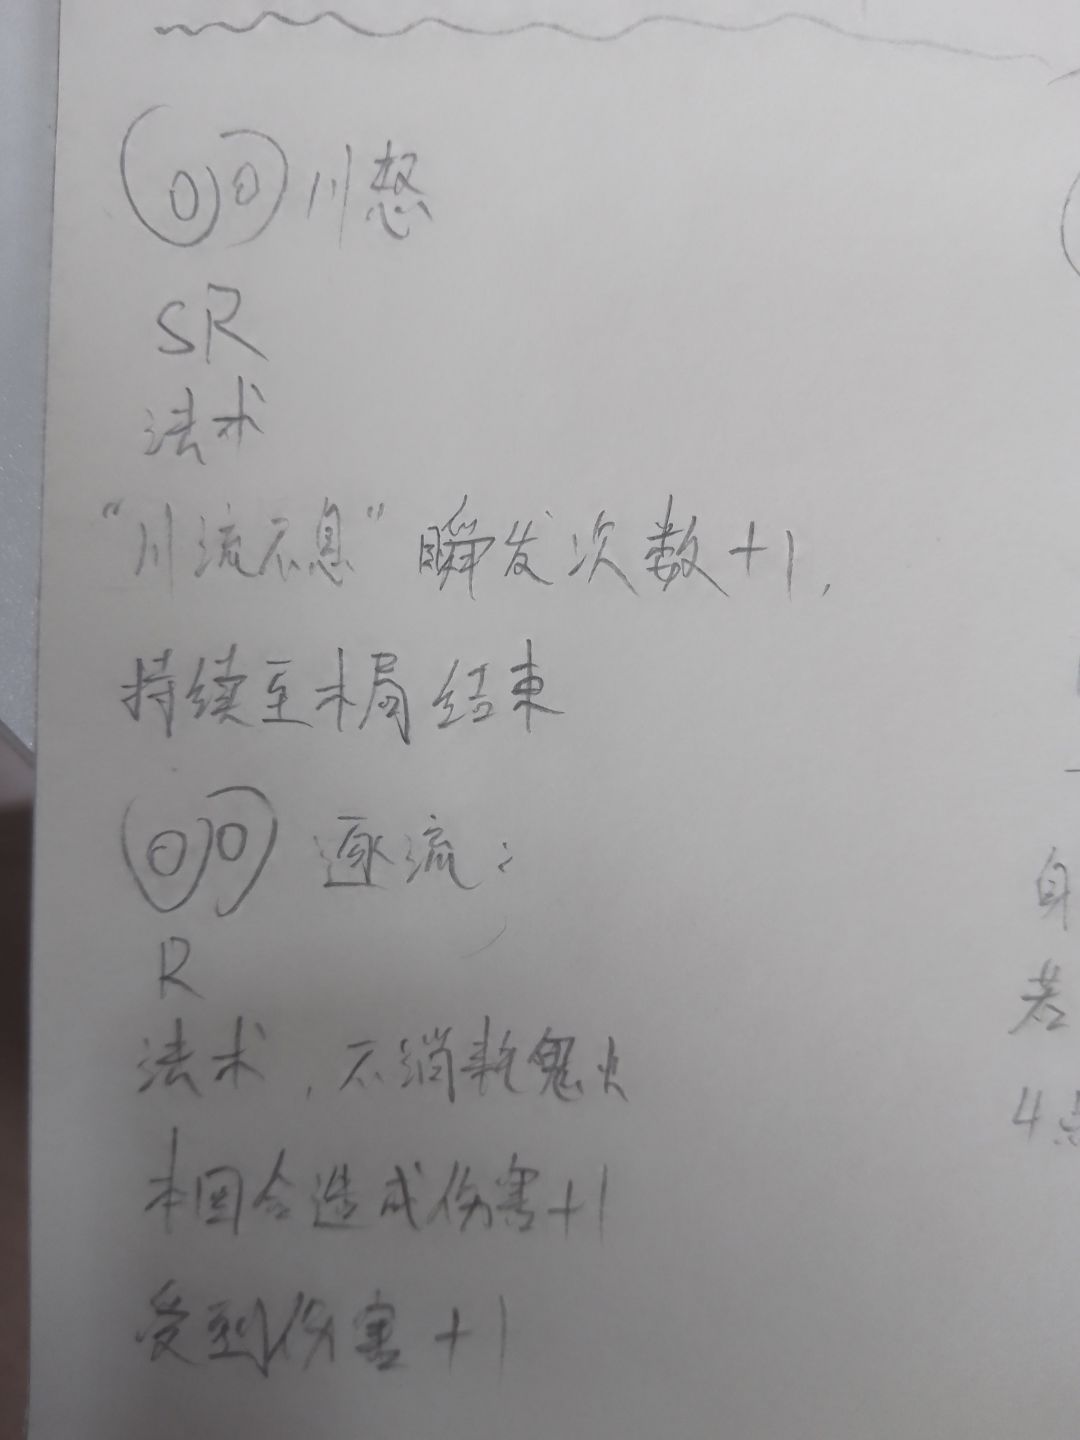 川怒
SR
法术
“川流不息”瞬发次数+1,
持续至本局结束
逐流:
R
法术,不消耗鬼火
本回合造成伤害+1
受到伤害+1
自
若
4点